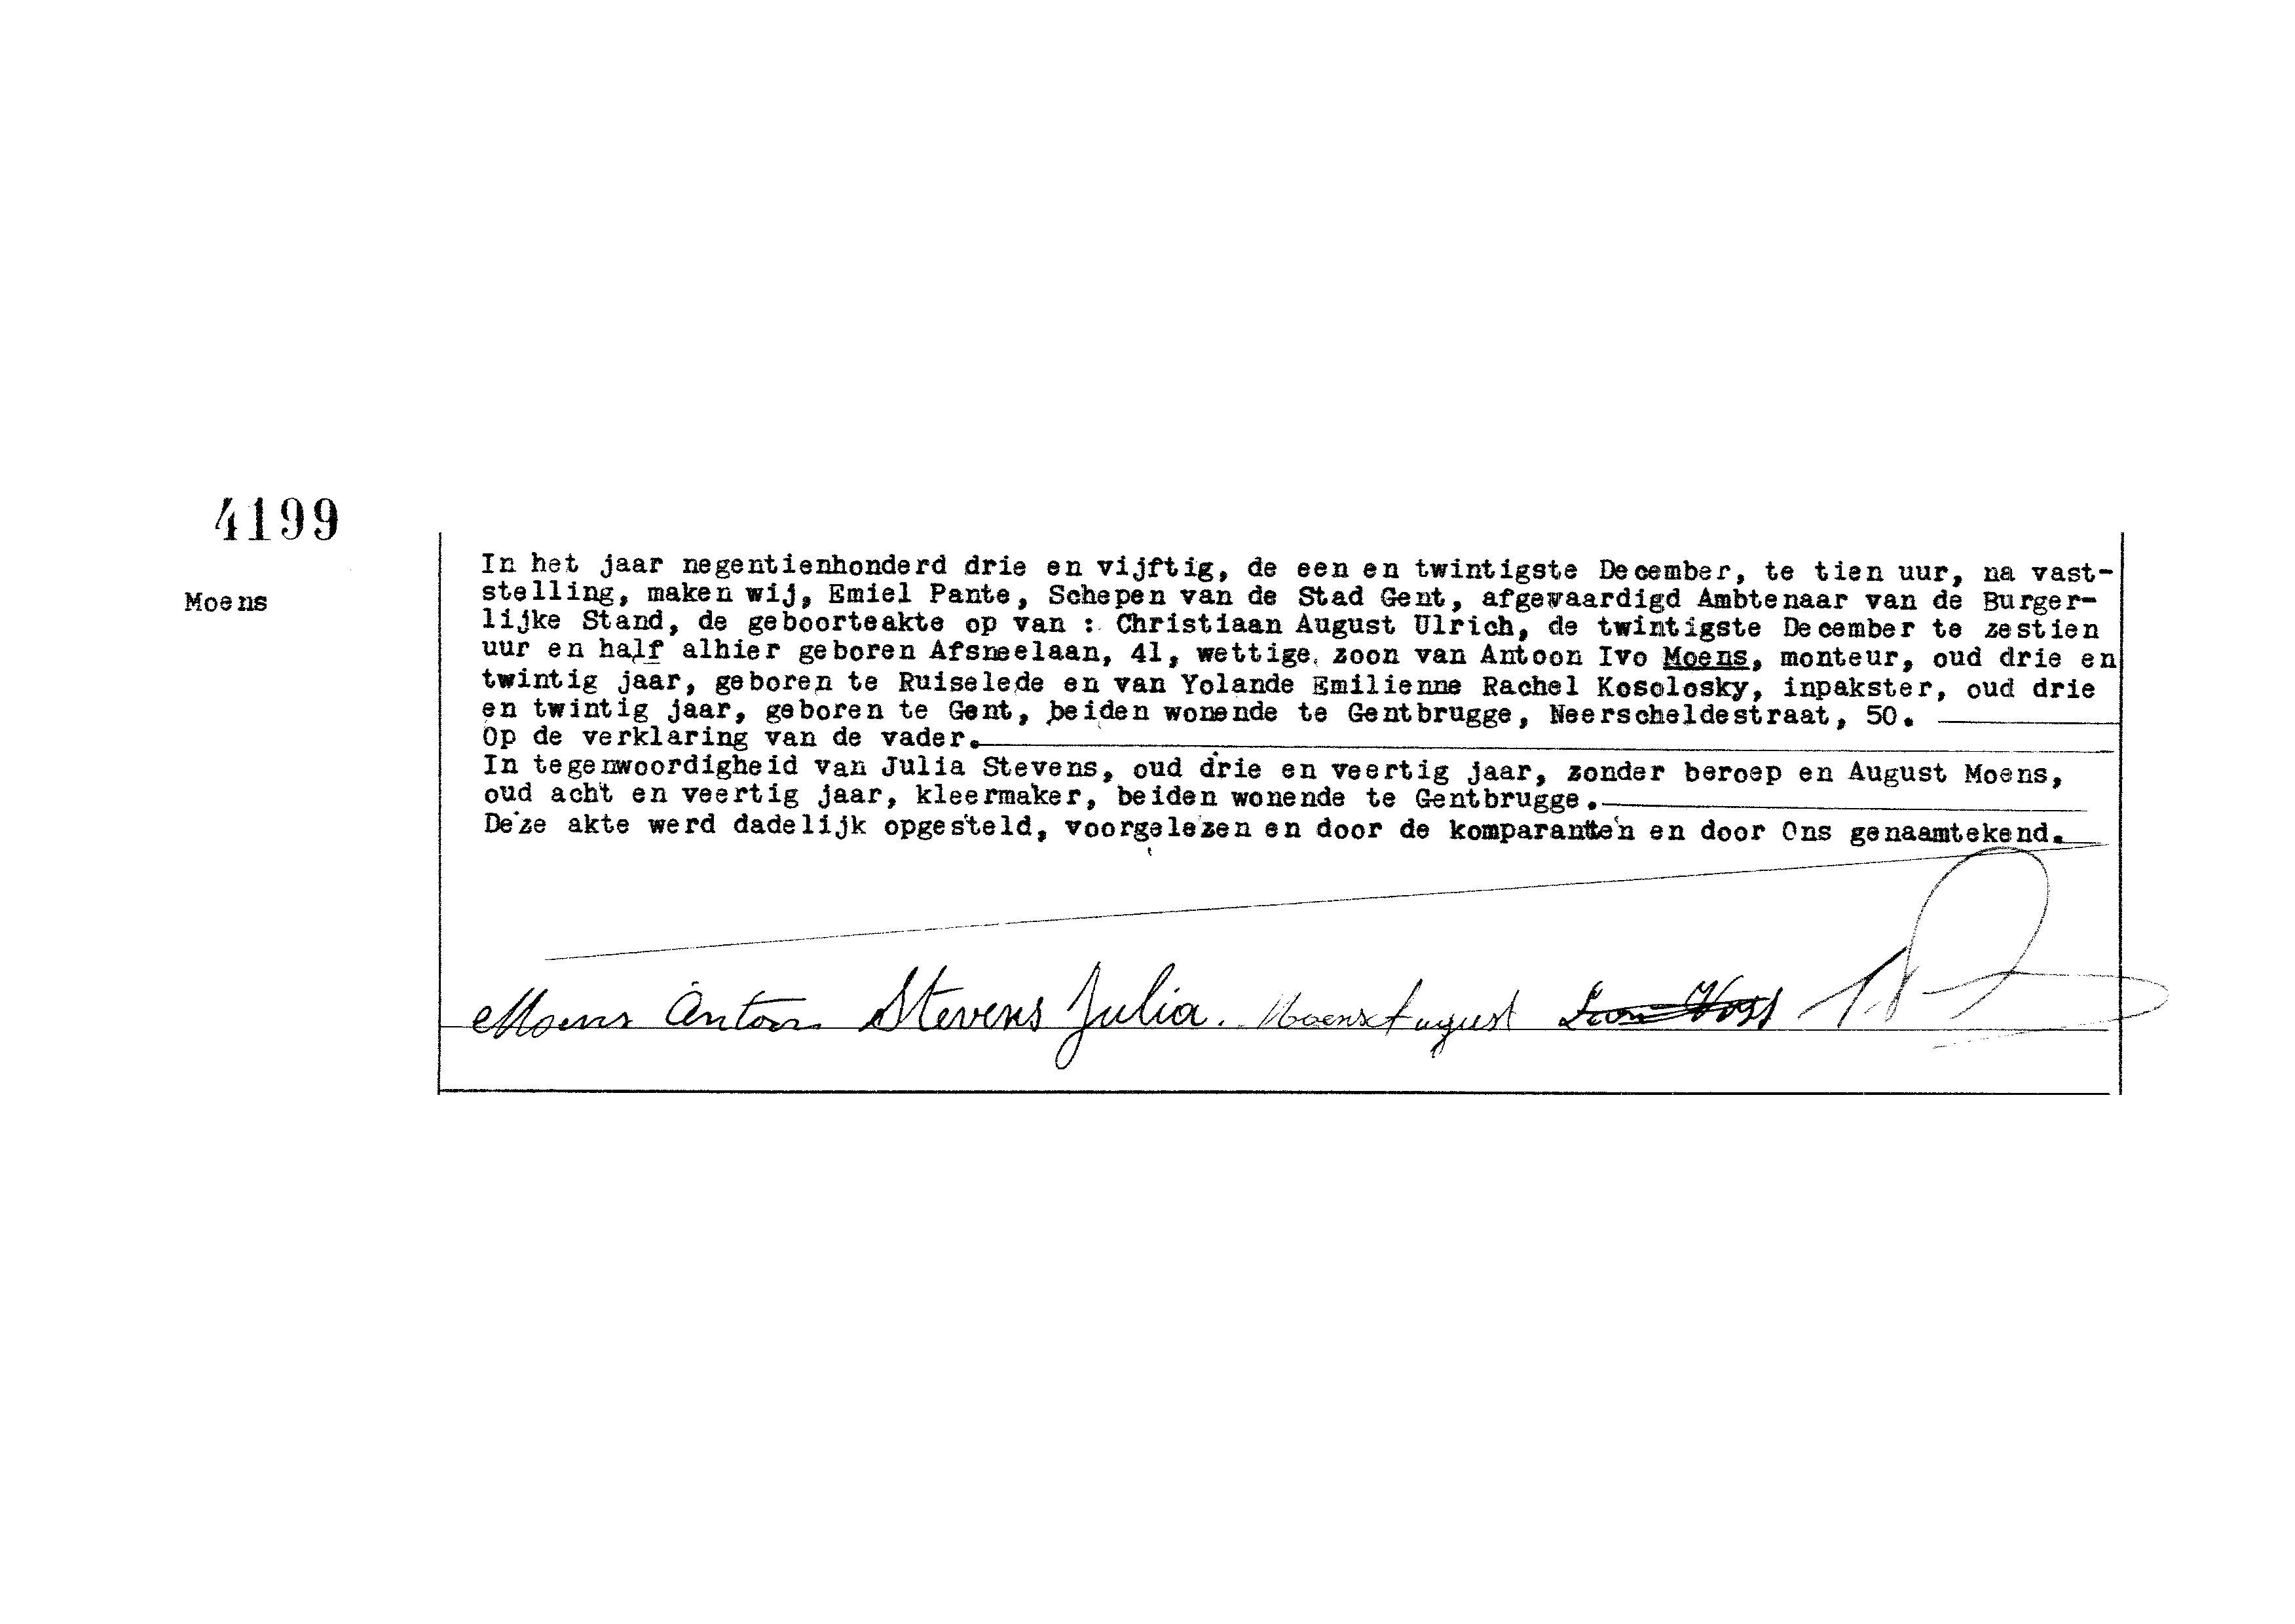 4199
Moens
In het jaar negentienhonderd drie en vijftig, de een en twintigste December, te tien uur, na vast-
stelling, maken wij, Emiel Pante, Schepen van de Stad Gent, afgevaardigd Ambtenaar van de Burger-
lijke Stand, de geboorteakte op van : Christiaan August Ulrich, de twintigste December te zestien
uur en half alhier geboren Afsneelaan, 41, wettige zoon van Antoon Ivo Moens, monteur, oud drie en
twintig jaar, geboren te Ruiselede en van Yolande Emilienne Rachel Kosolosky, inpakster, oud drie
en twintig jaar, geboren te Gent, beiden wonende te Gentbrugge, Neerscheldestraat, 50.
Op de verklaring van de vader.
In tegenwoordigheid van Julia Stevens, oud drie en veertig jaar, zonder beroep en August Moens,
oud acht en veertig jaar, kleermaker, beiden wonende te Gentbrugge.
Deze akte werd dadelijk opgesteld, voorgelezen en door de komparanten en door Ons genaamtekend.
Moens Antoon Stevens Julia. Moens August